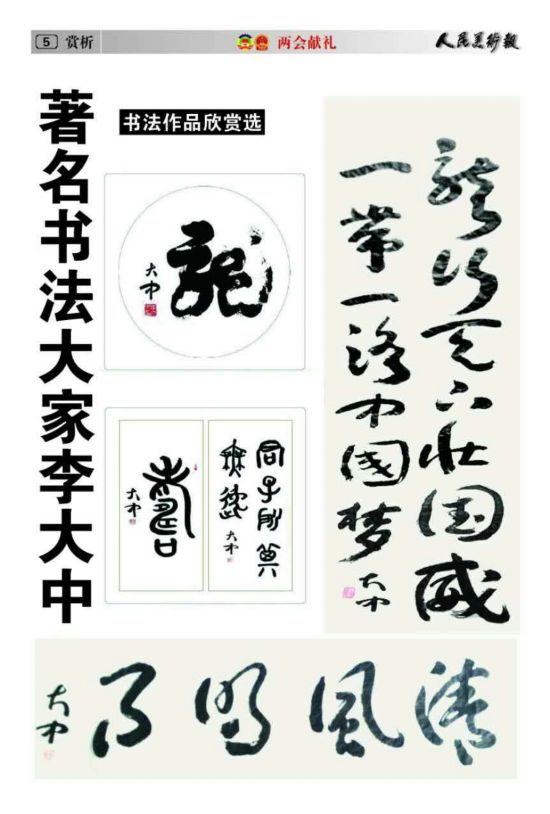 5 赏析
两会献礼
人民美術報
著名书法大家李大中
书法作品欣赏选
龍
大中
龍行天下壮国威
一带一路中国梦
大中
君子所其
無逸
大中
寿
大中
清風明月
大中